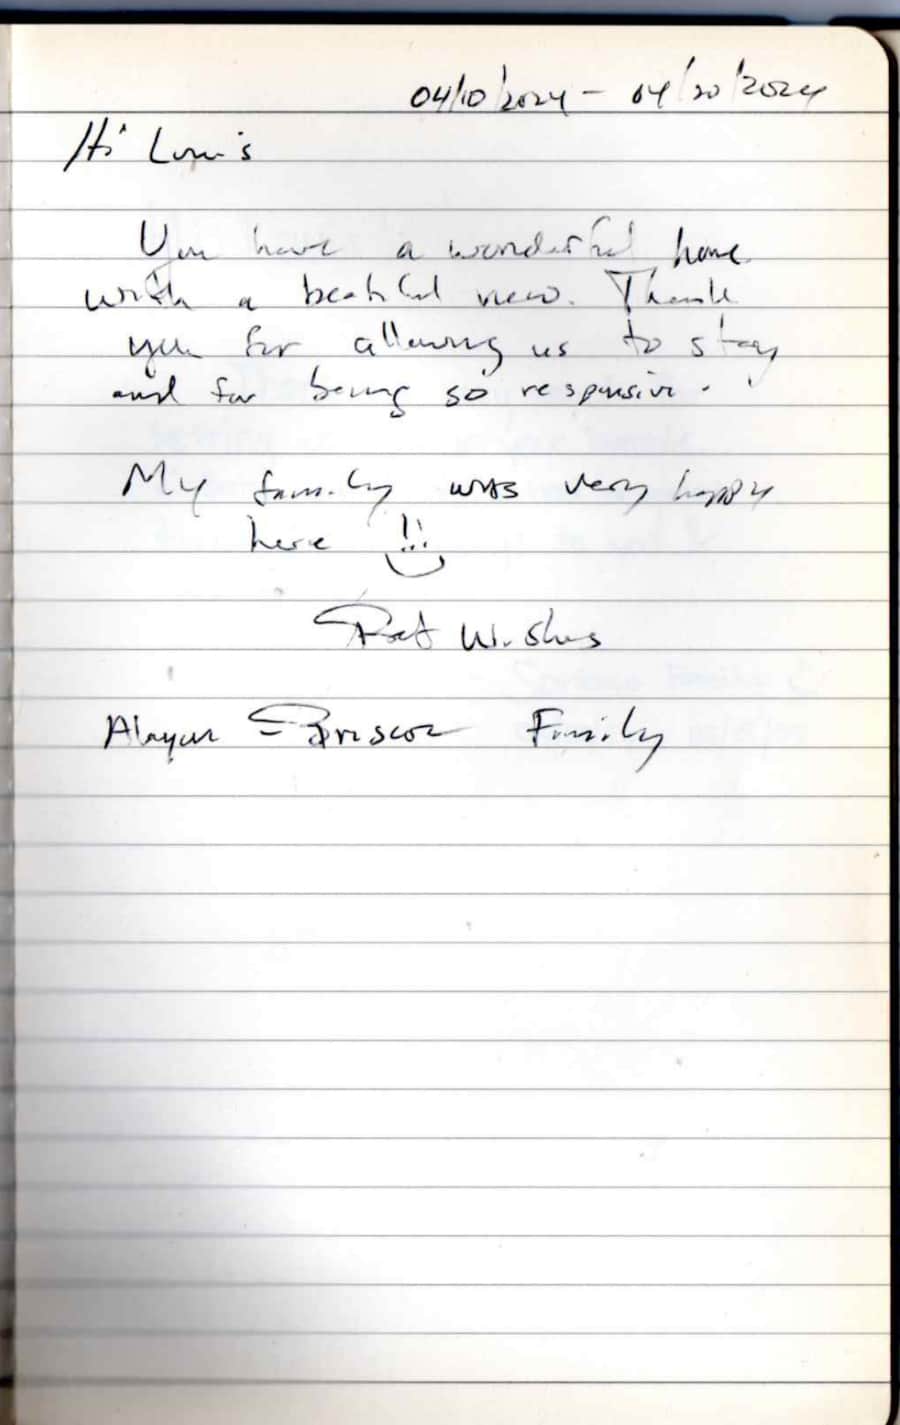 04/10/2024 - 04/20/2024
Hi Louis
You have a wonderful home
with a beatiful view. Thank
you for allowing us to stay
and for being so responsive.
My family was very happy
here !!
Best Wishes
Briscoe Family